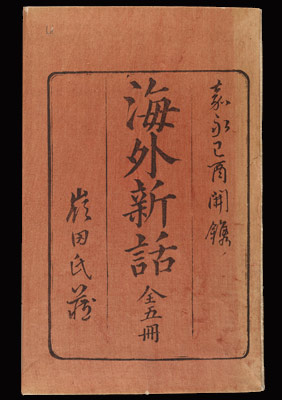 嘉永己酉開鐫
海外新話 全五冊
嶺田氏蔵